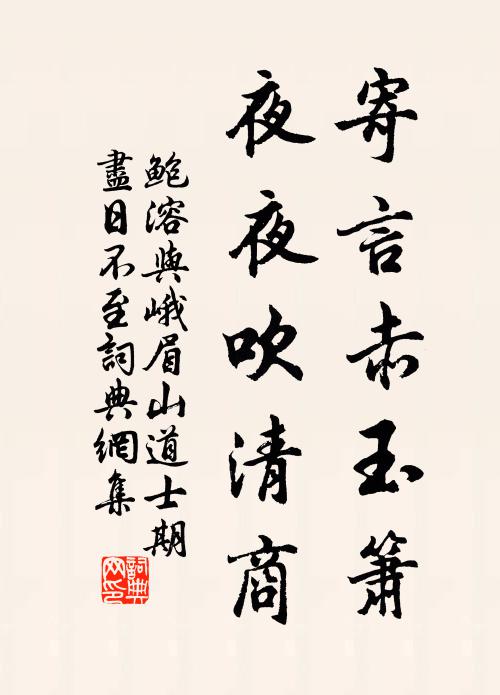 寄言赤玉簫
夜夜吹清商
鲍溶與峨眉山道士期
盡日不至詞典網集
詞典
网印